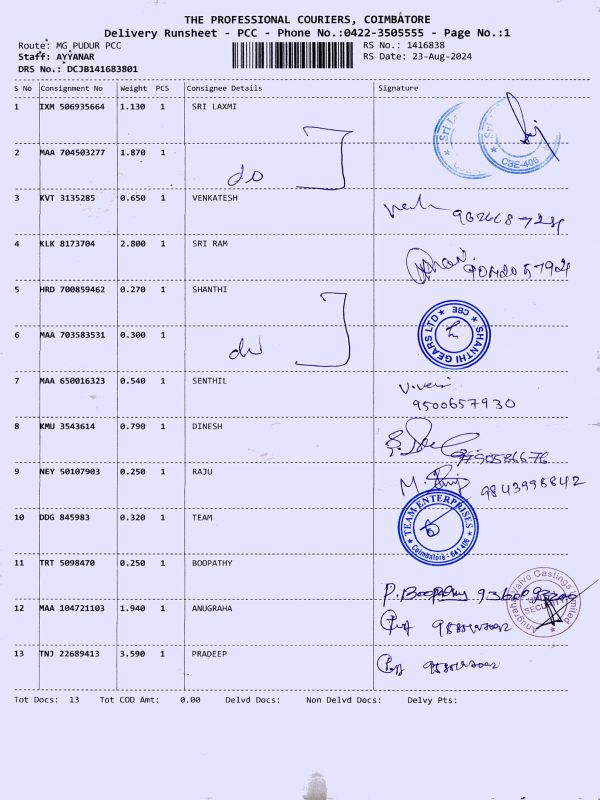 THE PROFESSIONAL COURIERS, COIMBATORE
Delivery Runsheet - PCC - Phone No.:0422-3505555 - Page No.:1
Route: MG PUDUR PCC RS No.: 1416838
Staff: AYYANAR RS Date: 23-Aug-2024
DRS No.: DCJB141683801
S No Consignment No Weight PCS Consignee Details Signature
1 IXM 506935664 1.130 1 SRI LAXMI
CBE-406
2 MAA 704503277 1.870 1 do
3 KVT 3135285 0.650 1 VENKATESH
4 KLK 8173704 2.800 1 SRI RAM
5 HRD 700859462 0.270 1 SHANTHI
SHANTHI GEARS LTD CBE
6 MAA 703583531 0.300 1 do
7 MAA 650016323 0.540 1 SENTHIL
9500657930
8 KMU 3543614 0.790 1 DINESH
9 NEY 50107903 0.250 1 RAJU
10 DDG 845983 0.320 1 TEAM
TEAM ENTERPRISES
Coimbatore - 641 406
11 TRT 5098470 0.250 1 BOOPATHY
P. Boopathy
12 MAA 104721103 1.940 1 ANUGRAHA
Anugraha Valvo Castings Limited
SECURITY
13 TNJ 22689413 3.590 1 PRADEEP
Tot Docs: 13 Tot COD Amt: 0.00 Delvd Docs: Non Delvd Docs: Delvy Pts: